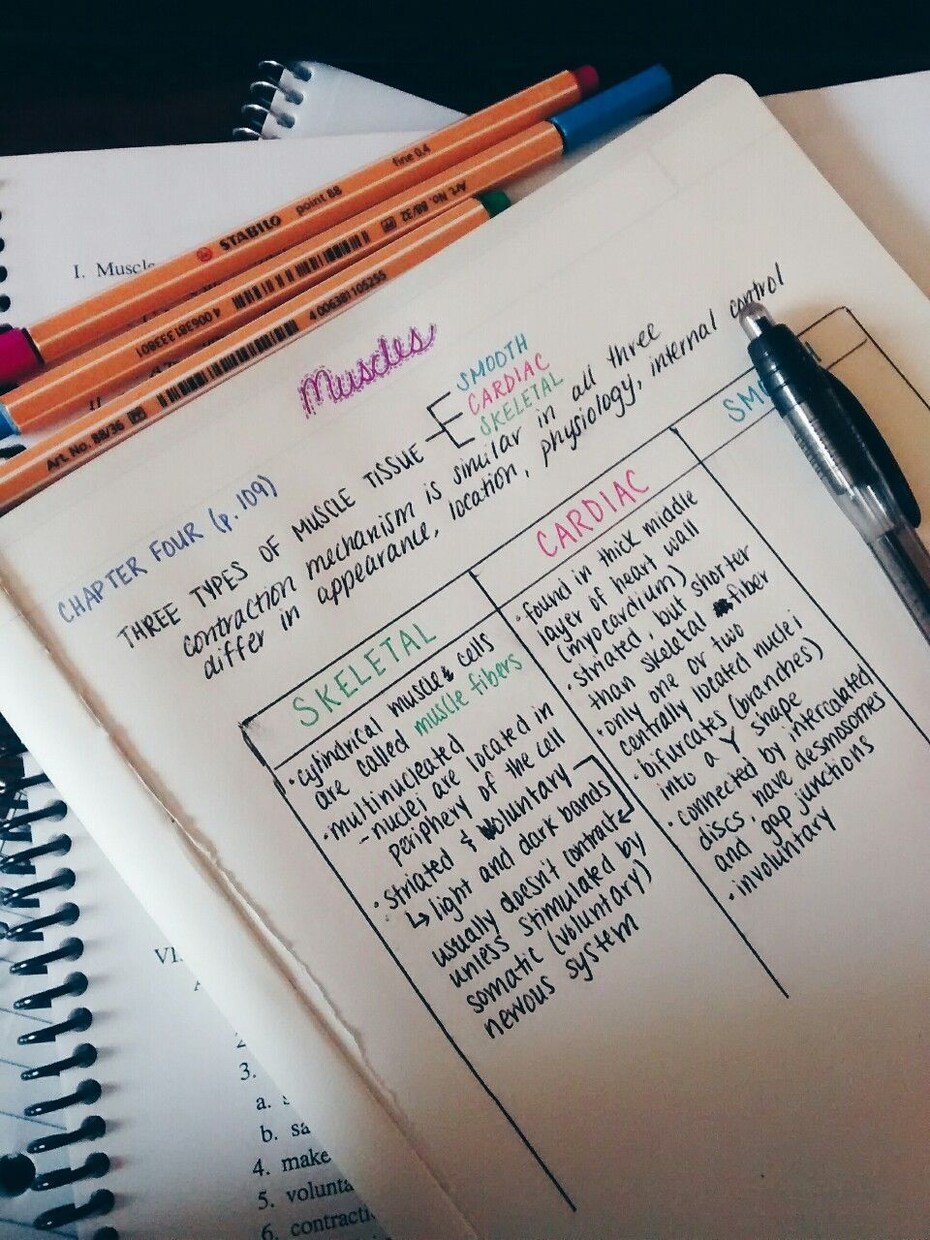 I. Muscle
STABILO point 88 fine 0.4
Art. No. 88/32 4 006381 333801
Art. No. 88/36 4 006381 105255
Muscles
CHAPTER FOUR (p. 109)
THREE TYPES OF MUSCLE TISSUE
SMOOTH
CARDIAC
SKELETAL
contraction mechanism is similar in all three
differ in appearance, location, physiology, internal control
SKELETAL
• cylindrical muscle cells
are called muscle fibers
• multinucleated
- nuclei are located in
periphery of the cell
• striated & voluntary
↳ light and dark bands
usually doesn't contract
unless stimulated by
somatic (voluntary)
nervous system
CARDIAC
• found in thick middle
layer of heart wall
(myocardium)
• striated, but shorter
than skeletal fiber
• only one or two
centrally located nuclei
• bifurcates (branches)
into a Y shape
• connected by intercalated
discs, have desmosomes
and gap junctions
• involuntary
SM
VI.
2
3.
a.
b. sa
4. make
5. volunta
6. contracti